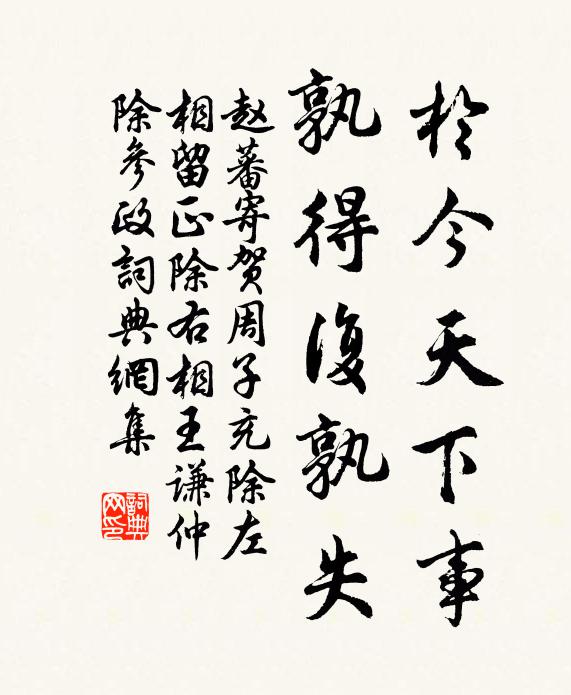 於今天下事
孰得復孰失
赵蕃寄贺周子充除左
相留正除右相王谦仲
除參政詞典網集
詞典网印